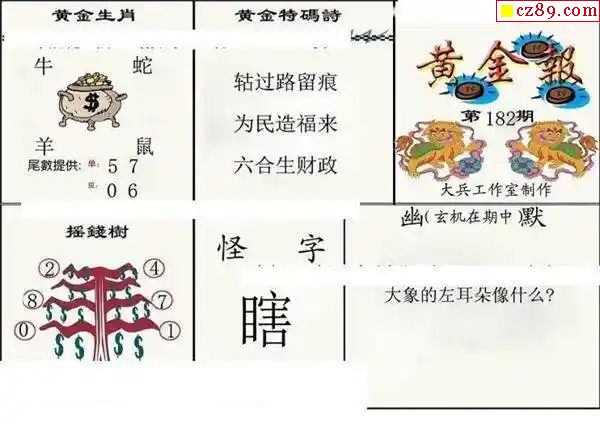 cz89.com
黄金生肖
牛 蛇
$
羊 鼠
尾數提供: 单: 5 7
双: 0 6
黄金特碼詩
轱过路留痕
为民造福来
六合生财政
黄金報
第182期
大兵工作室制作
摇錢樹
2 4
8 7
0 1
$ $ $ $ $ $ $ $
怪字
瞎
幽(玄机在期中)默
大象的左耳朵像什么?